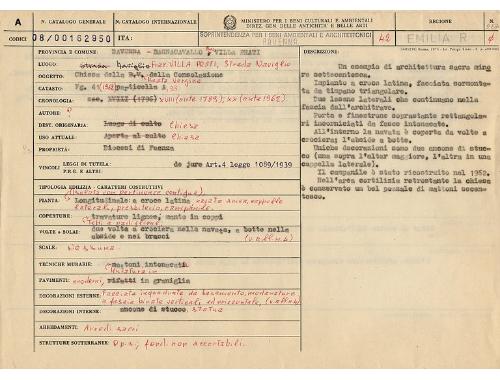 N. CATALOGO GENERALE
N. CATALOGO INTERNAZIONALE
MINISTERO PER I BENI CULTURALI E AMBIENTALI
DIREZ. GEN. DELLE ANTICHITA' E BELLE ARTI
REGIONE
N.
R
CODICI
08/00162950
ITA:
SOPRINTENDENZA PER I BENI AMBIENTALI E ARCHITETTONICI
RAVENNA
42
EMILIA R
PROVINCIA E COMUNE RAVENNA - BAGNACAVALLO, VILLA PRATI
LUOGO: Strada Naviglio Fraz. VILLA PRATI, Strada Naviglio
OGGETTO: Chiesa della B.V. della Consolazione
Beata Vergine
CATASTO: Fg. 41 particella A
CRONOLOGIA: sec. XVIII (1796) XVIII (ante 1783); XX (ante 1962)
AUTORE:
DEST. ORIGINARIA: Luogo di culto Chiesa
USO ATTUALE: Aperta al culto Chiesa
PROPRIETÀ: Diocesi di Faenza
VINCOLI
LEGGI DI TUTELA: de jure Art.4 legge 1089/1939
P.R.G. E ALTRI:
TIPOLOGIA EDILIZIA - CARATTERI COSTRUTTIVI
PIANTA: Longitudinale a croce latina
laterali, presbiterio, campanile
COPERTURE: travature lignee, manto in coppi
VOLTE o SOLAI: due volta a crociera nella navata, a botte nella
abside e nei bracci
SCALE: Nessuna
TECNICHE MURARIE: mattoni intonacati
PAVIMENTI: moderni, rifatti in graniglia
DECORAZIONI ESTERNE: Facciata inquadrata da basamento, modanature
a fascia binate verticali ed orizzontale,
DECORAZIONI INTERNE: ancone di stucco, statue
ARREDAMENTI: Arredi sacri
STRUTTURE SOTTERRANEE: fond. non accertabili.
DESCRIZIONE:
Un esempio di architettura sacra minore settecentesca.
Impianto a croce latina, facciata sormontata da timpano triangolare.
Due lesene laterali che continuano nella fascia dell'architrave.
Porta e finestrone soprastante rettangolari incorniciati da fasce intonacate.
All'interno la navata è coperta da volte a crociera; l'abside a botte.
Uniche decorazioni sono due ancone di stucco (una sopra l'altar maggiore, l'altra in una cappella laterale).
Il campanile è stato ricostruito nel 1952.
Nell'area cortilizia retrostante la chiesa è conservato un bel pozzale di mattoni settecentesco.